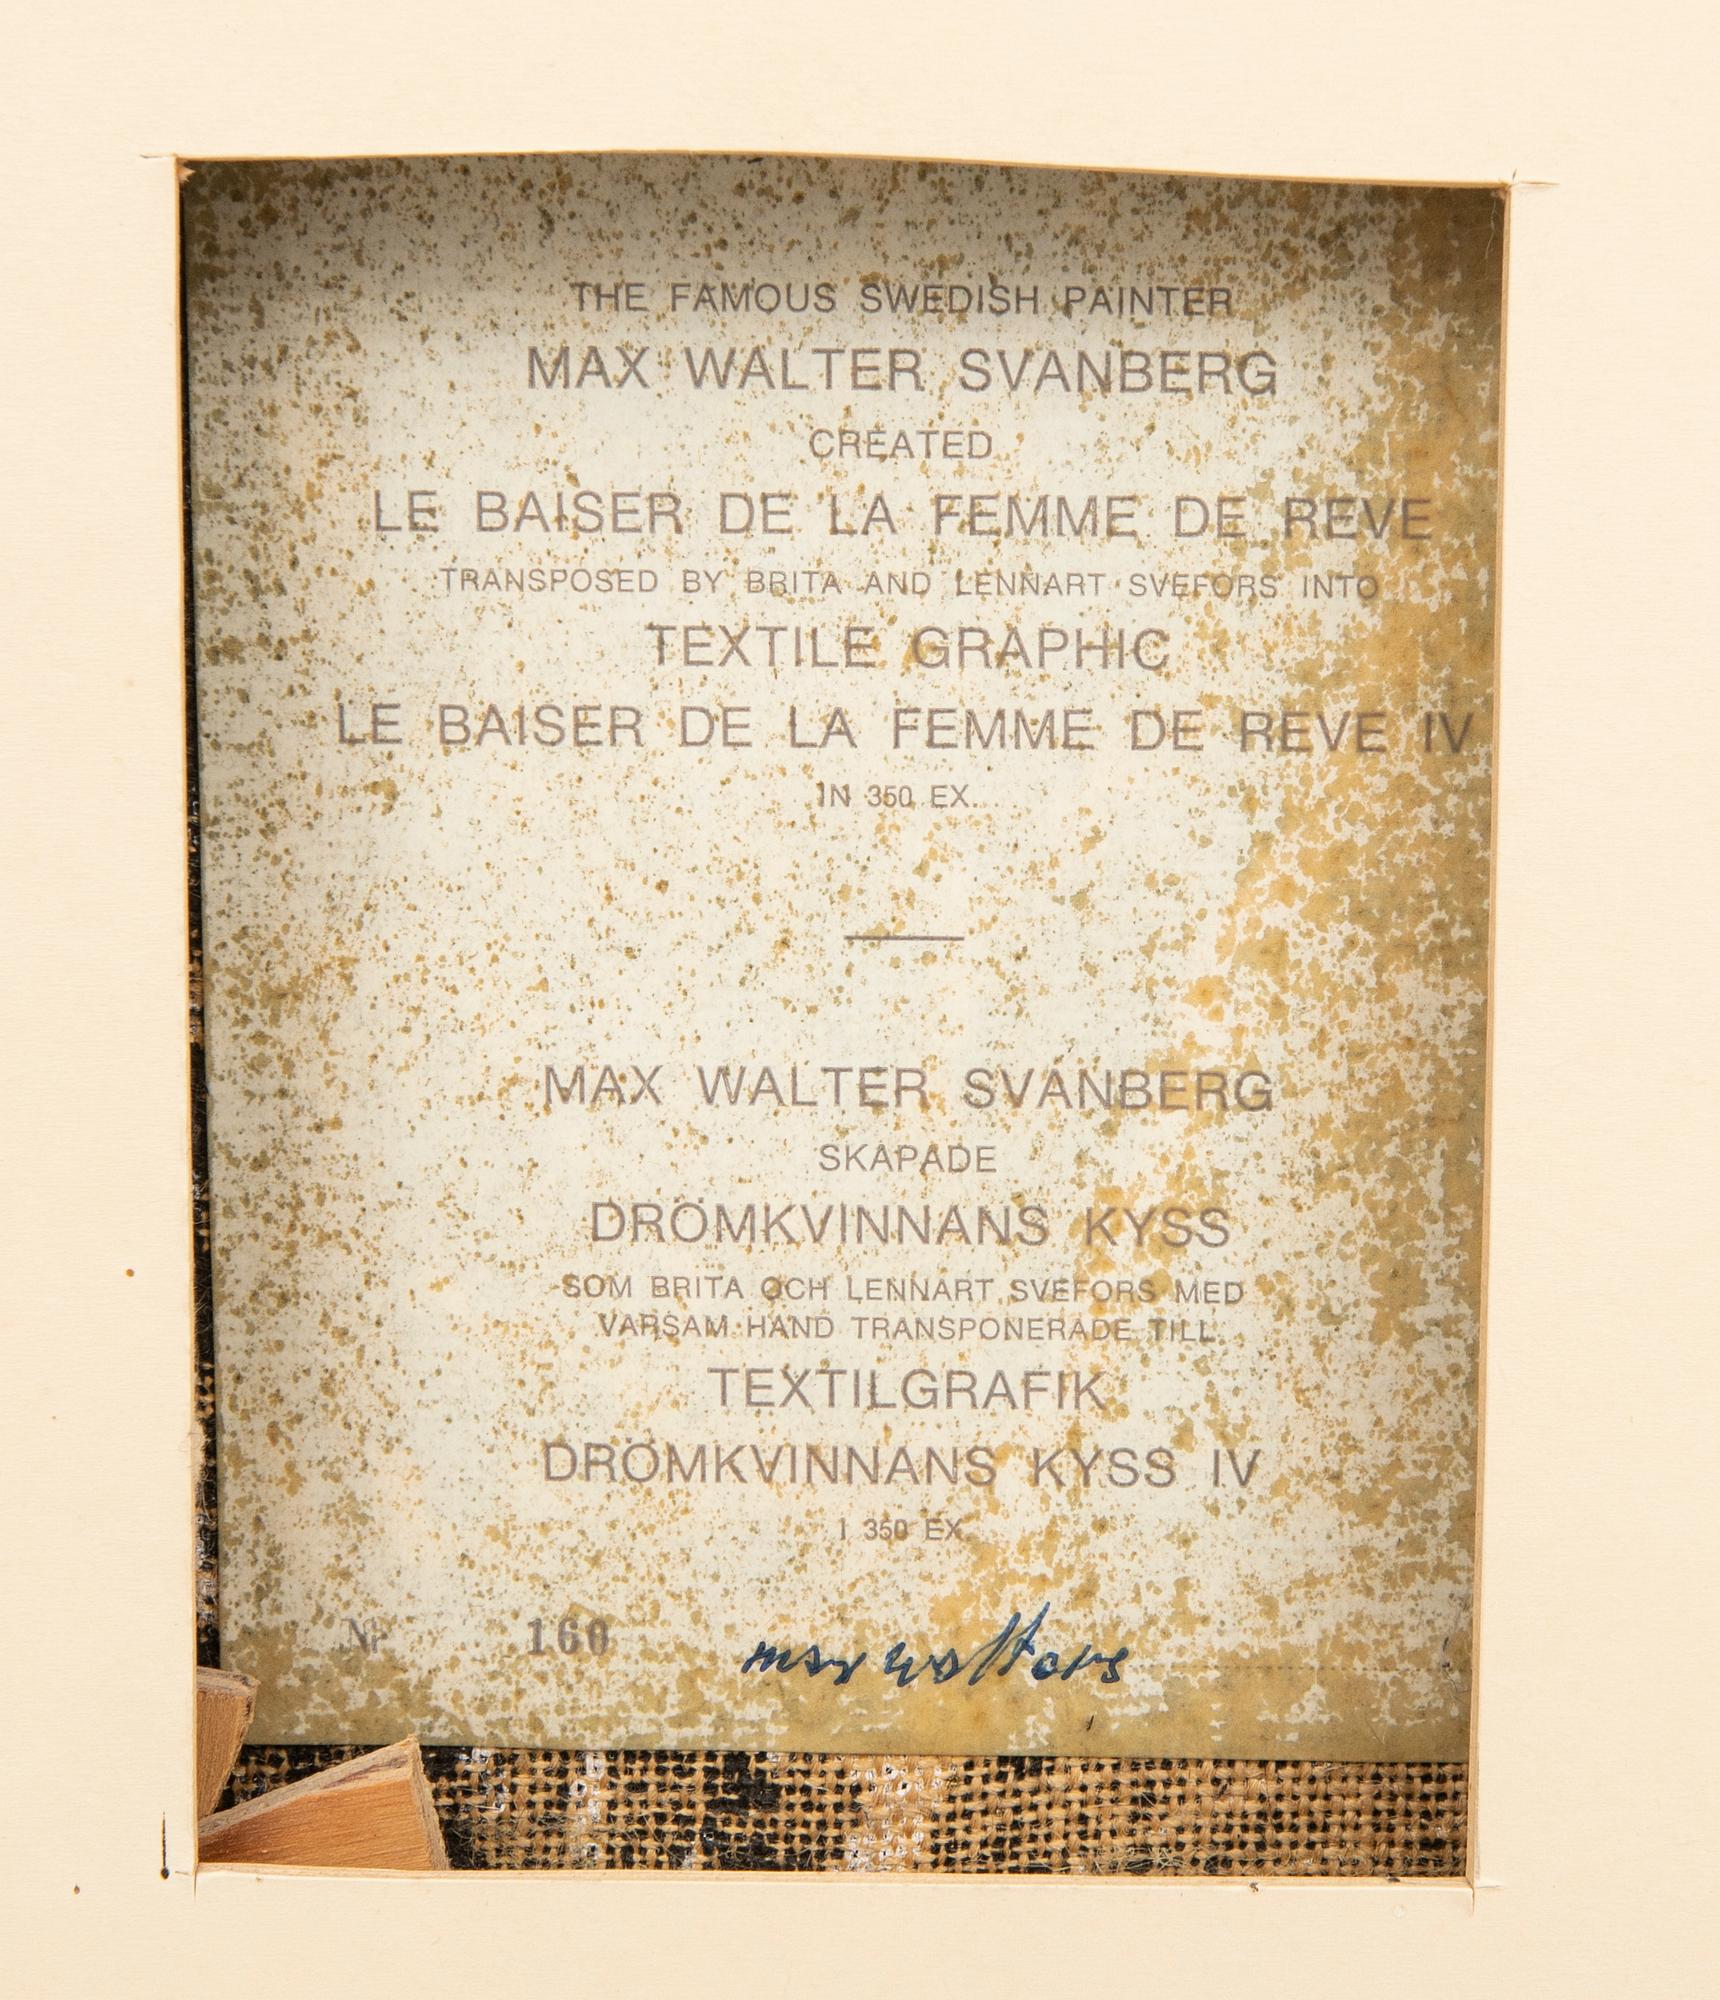 THE FAMOUS SWEDISH PAINTER
MAX WALTER SVANBERG
CREATED
LE BAISER DE LA FEMME DE REVE
TRANSPOSED BY BRITA AND LENNART SVEFORS INTO
TEXTILE GRAPHIC
LE BAISER DE LA FEMME DE REVE IV
IN 350 EX.
MAX WALTER SVANBERG
SKAPADE
DRÖMKVINNANS KYSS
SOM BRITA OCH LENNART SVEFORS MED
VARSAM HAND TRANSPONERADE TILL
TEXTILGRAFIK
DRÖMKVINNANS KYSS IV
I 350 EX.
Nr 160 max walter s